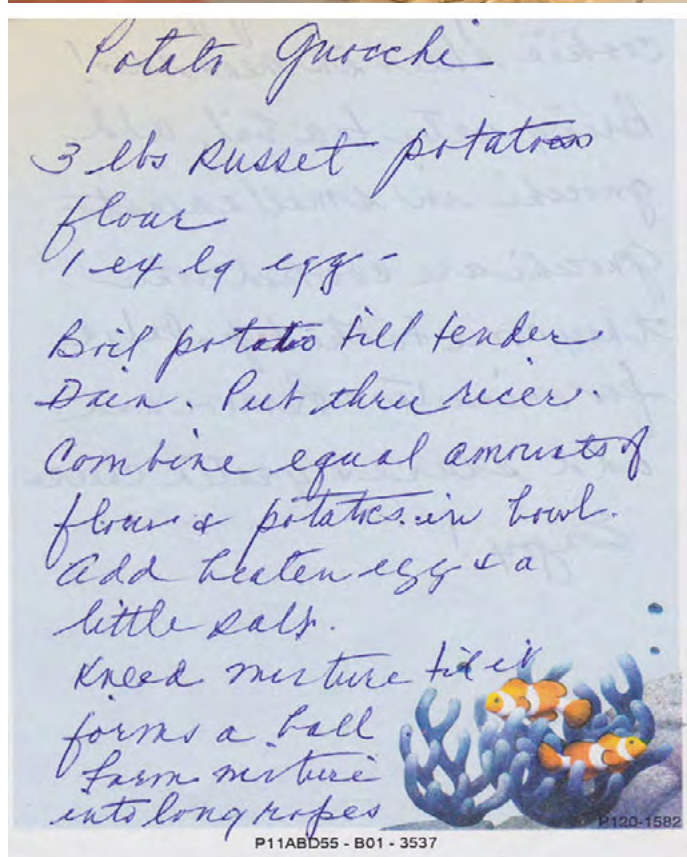 Potato Gnocchi
3 lbs Russet potatoes
flour
1 ex lg egg -
Boil potato till tender
Dain. Put thru ricer.
Combine equal amounts of
flour & potatoes in bowl.
Add beaten egg & a
little salt.
Kneed mixture til it
forms a ball
Farm mixture
into long ropes
P120-1582
P11ABD55 - B01 - 3537